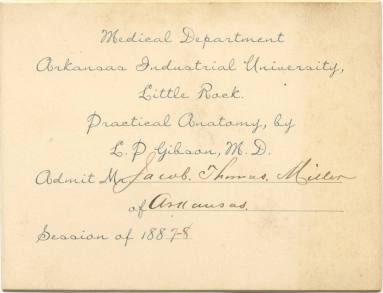 Medical Department
Arkansas Industrial University,
Little Rock.
Practical Anatomy, by
L. P. Gibson, M. D.
Admit Mr. Jacob. Thomas. Miller
of Arkansas.
Session of 1887-8